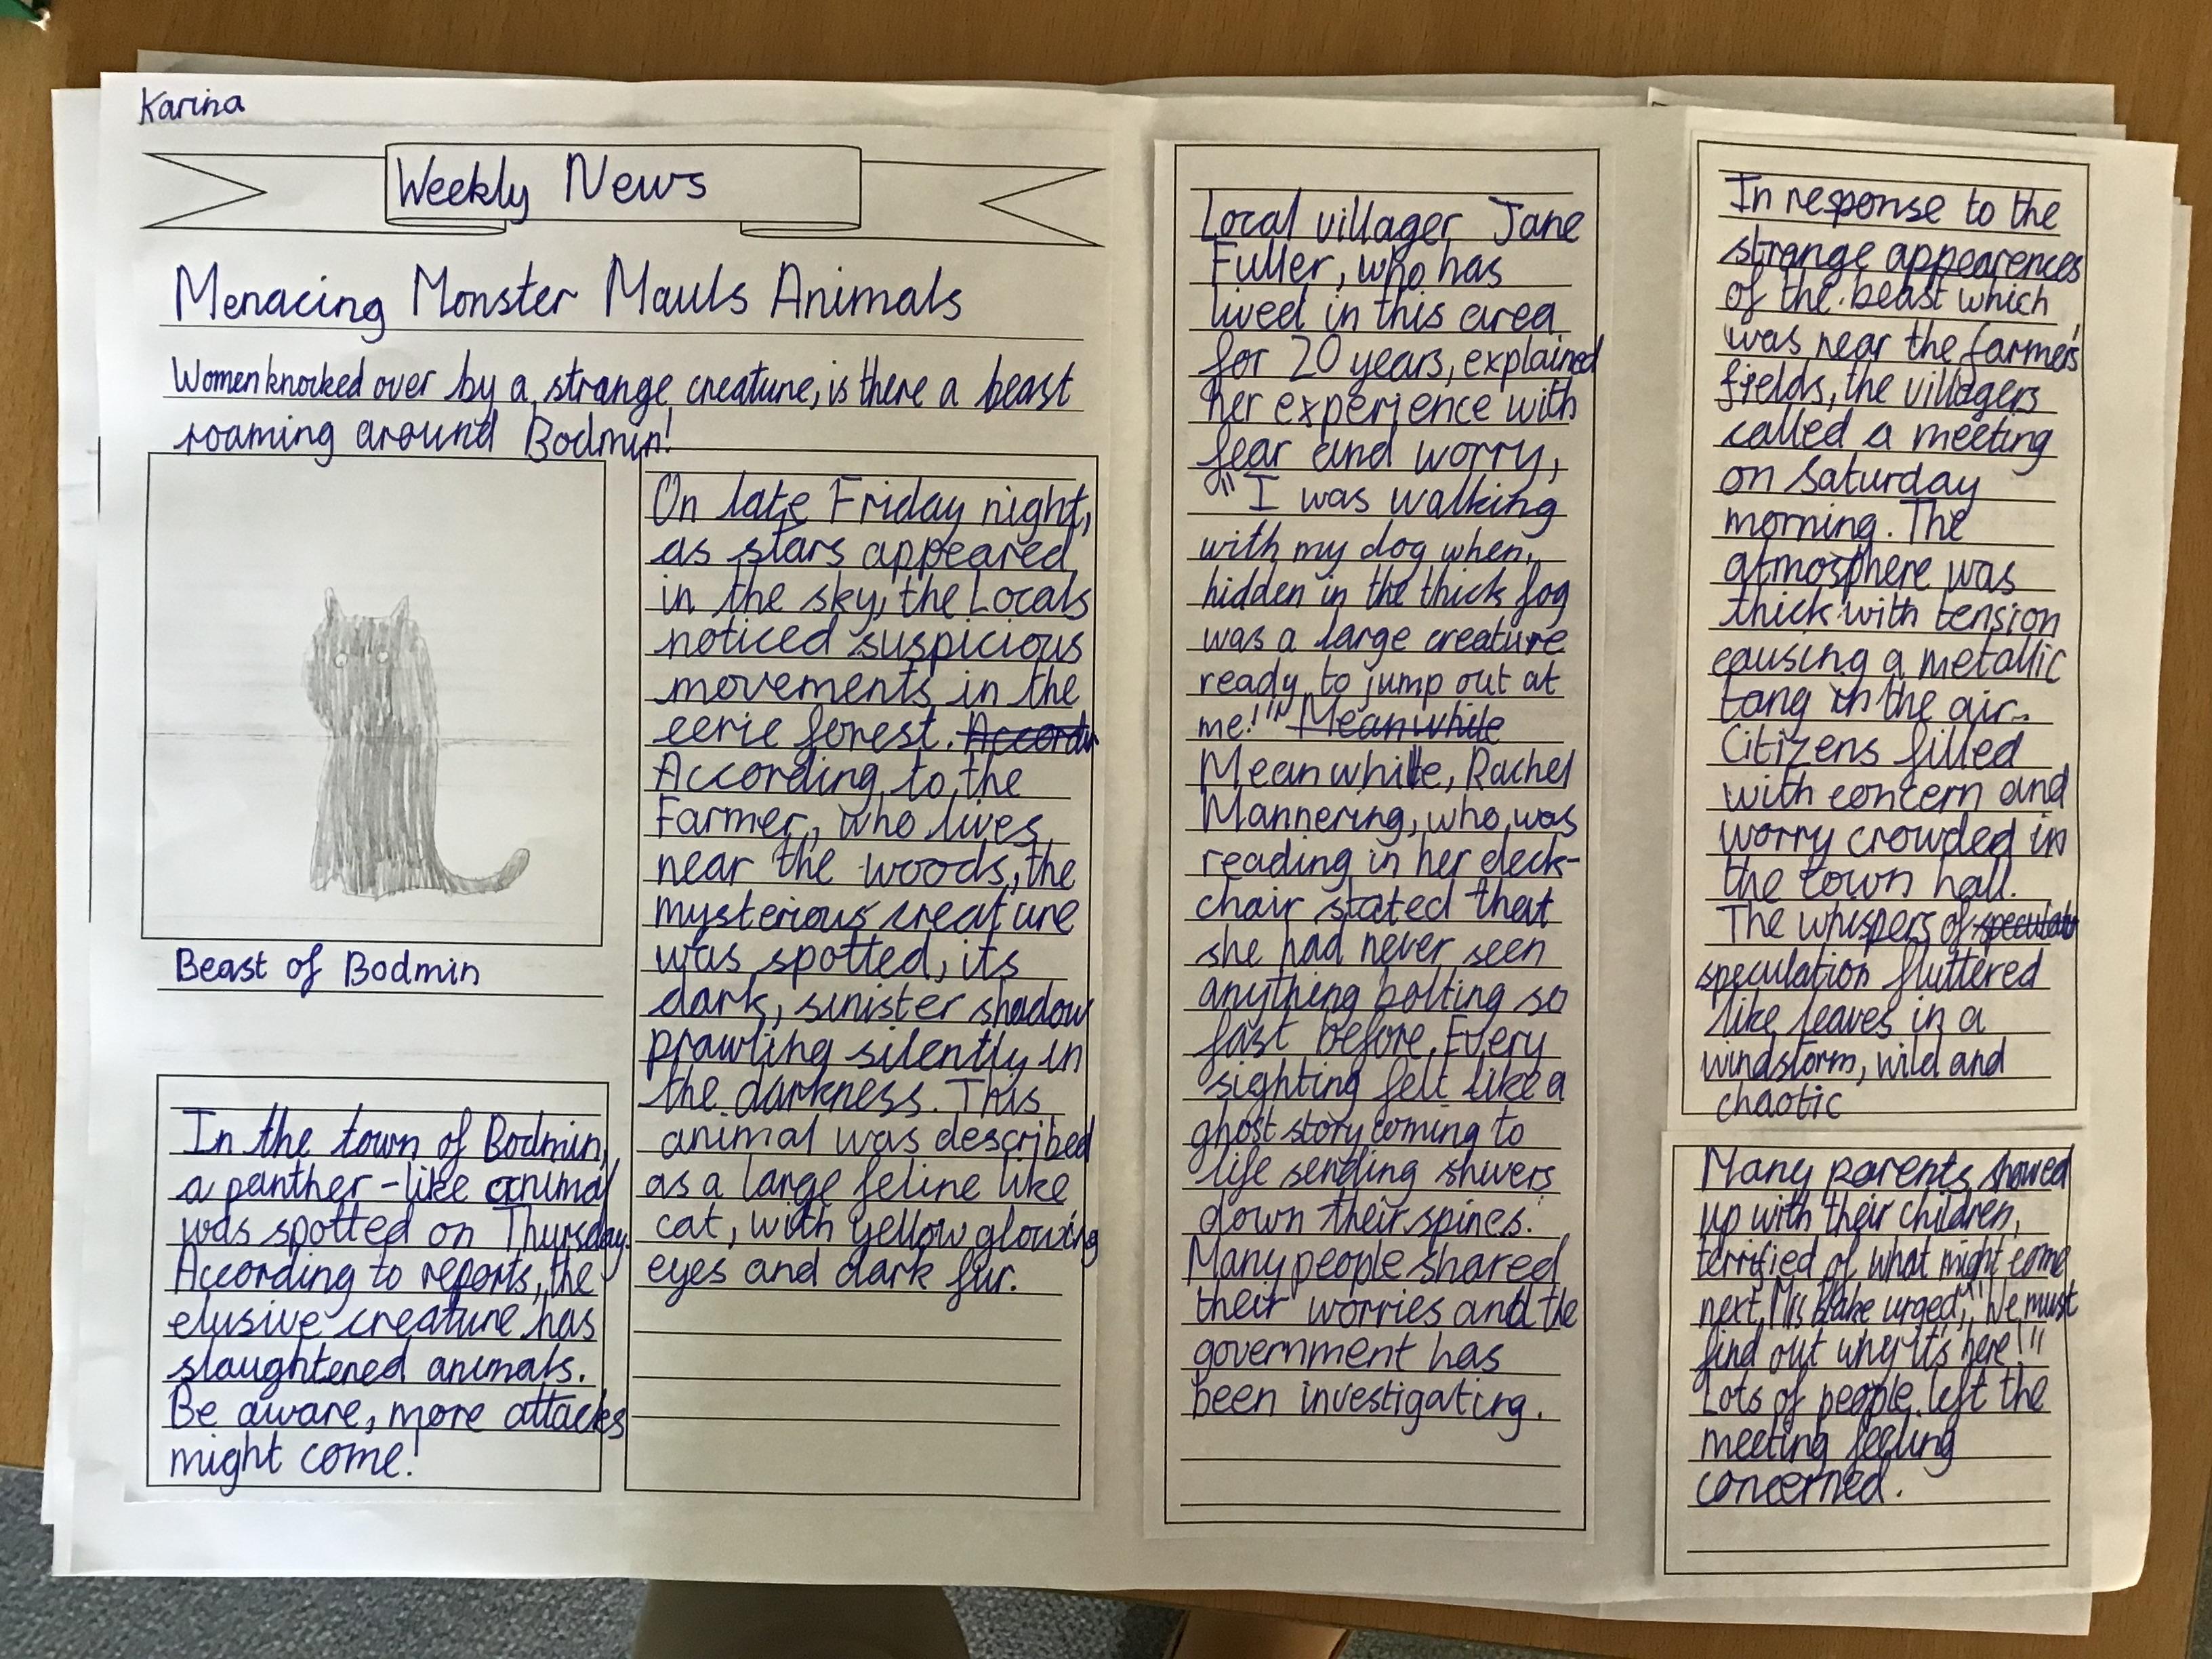 Karina
Weekly News
Menacing Monster Mauls Animals
Women knocked over by a strange creature, is there a beast
roaming around Bodmin!
Beast of Bodmin
In the town of Bodmin,
a panther-like animal
was spotted on Thursday.
According to reports, the
elusive creature has
slaughtened animals.
Be aware, more attacks
might come!
On late Friday night,
as stars appeared
in the sky, the Locals
noticed suspicious
movements in the
eerie forest. Accordi
According to the
Farmer, who lives
near the woods, the
mysterious creature
was spotted, its
dark, sinister shadow
prawling silently in
the darkness. This
animal was described
as a large feline like
cat, with yellow glowing
eyes and dark fur.
Local villager Jane
Fuller, who has
lived in this area
for 20 years, explained
her experience with
fear and worry,
"I was walking
with my dog when,
hidden in the thick fog
was a large creature
ready to jump out at
me!" Meanwhile
Meanwhile, Rachel
Mannering, who was
reading in her deck-
chair stated that
she had never seen
anything bolting so
fast before. Every
sighting felt like a
ghost story coming to
life sending shivers
down their spines.
Many people shared
their worries and the
government has
been investigating.
In response to the
strange appearences
of the beast which
was near the farmer's
fields, the villagers
called a meeting
on Saturday
morning. The
atmosphere was
thick with tension
causing a metallic
tang in the air.
Citizens filled
with concern and
worry crowded in
the town hall.
The whispers of speculati
speculation fluttered
like leaves in a
windstorm, wild and
chaotic
Many parents showed
up with their children,
terrified of what might come
next. Mrs Blake urged, "We must
find out why it's here!"
Lots of people left the
meeting feeling
concerned.